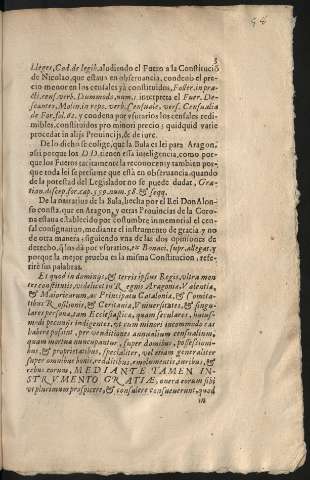 3
Lleges, Cod. de legib. aludiendo el Fuero a la Constitució
de Nicolao, que estaua en obseruancia, condenò el pre-
cio menor en los censales yà constituidos, Foller. in pra-
cti. cens. verb. Dummodo, num. 1. interpreta el Fuer. De-
seantes, Molin. in repo. verb. Censuale, vers. Censualia
de For. fol. 62. y condena por vsurarios los censales redi-
mibles, constituidos pro minori precio; quidquid varie
procedat in alijs Prouincijs, & de iure.
De lo dicho se colige, que la Bula es lei para Aragon,
assi porque los DD. tienen esta inteligencia, como por-
que los Fueros tacitamente la reconocen; y tambien por-
que toda lei se presume que està en obseruancia, quando
de la potestad del Legislador no se puede dudar, Gra-
tian. discep. for. cap. 559. num. 58. & seqq.
De la narratiua de la Bula, hecha por el Rei Don Alon-
so consta, que en Aragon, y otras Prouincias de la Coro-
na estaua establecido por costumbre inmemorial el cen-
sal consignatiuo, mediante el instrumento de gracia, y no
de otra manera, siguiendo vna de las dos opiniones de
derecho, q̃ los dà por vsurarios, ex Bonaci. supr. allegat. y
porque la mejor prueba es la misma Constitucion, refe-
rirè sus palabras.
Et quod in dominijs, & terris ipsius Regis, vltra mon-
tes constitutis, videlicet in Regnis Aragoniæ, Valentiæ,
& Maioricarum, ac Principatu Cataloniæ, & Comita-
tibus Rosilionis, & Ceritaniæ, Vniuersitates, & singu-
lares personæ, tam Ecclesiasticæ, quam seculares, huius-
modi pecunijs indigentes, vt cum minori incommodo eas
habere possint, per venditiones annualium censualium,
quam mortua nuncupantur, super domibus, possessioni-
bus, & proprietatibus, specialiter, vel etiam generaliter
super omnibus bonis, redditibus, emolumentis, iuribus, &
rebus eorum, MEDIANTE TAMEN IN-
STRVMENTO GRATIÆ, onera eorum sibi
vt plurimum prospicere, & consulere consueuerunt, quod
in